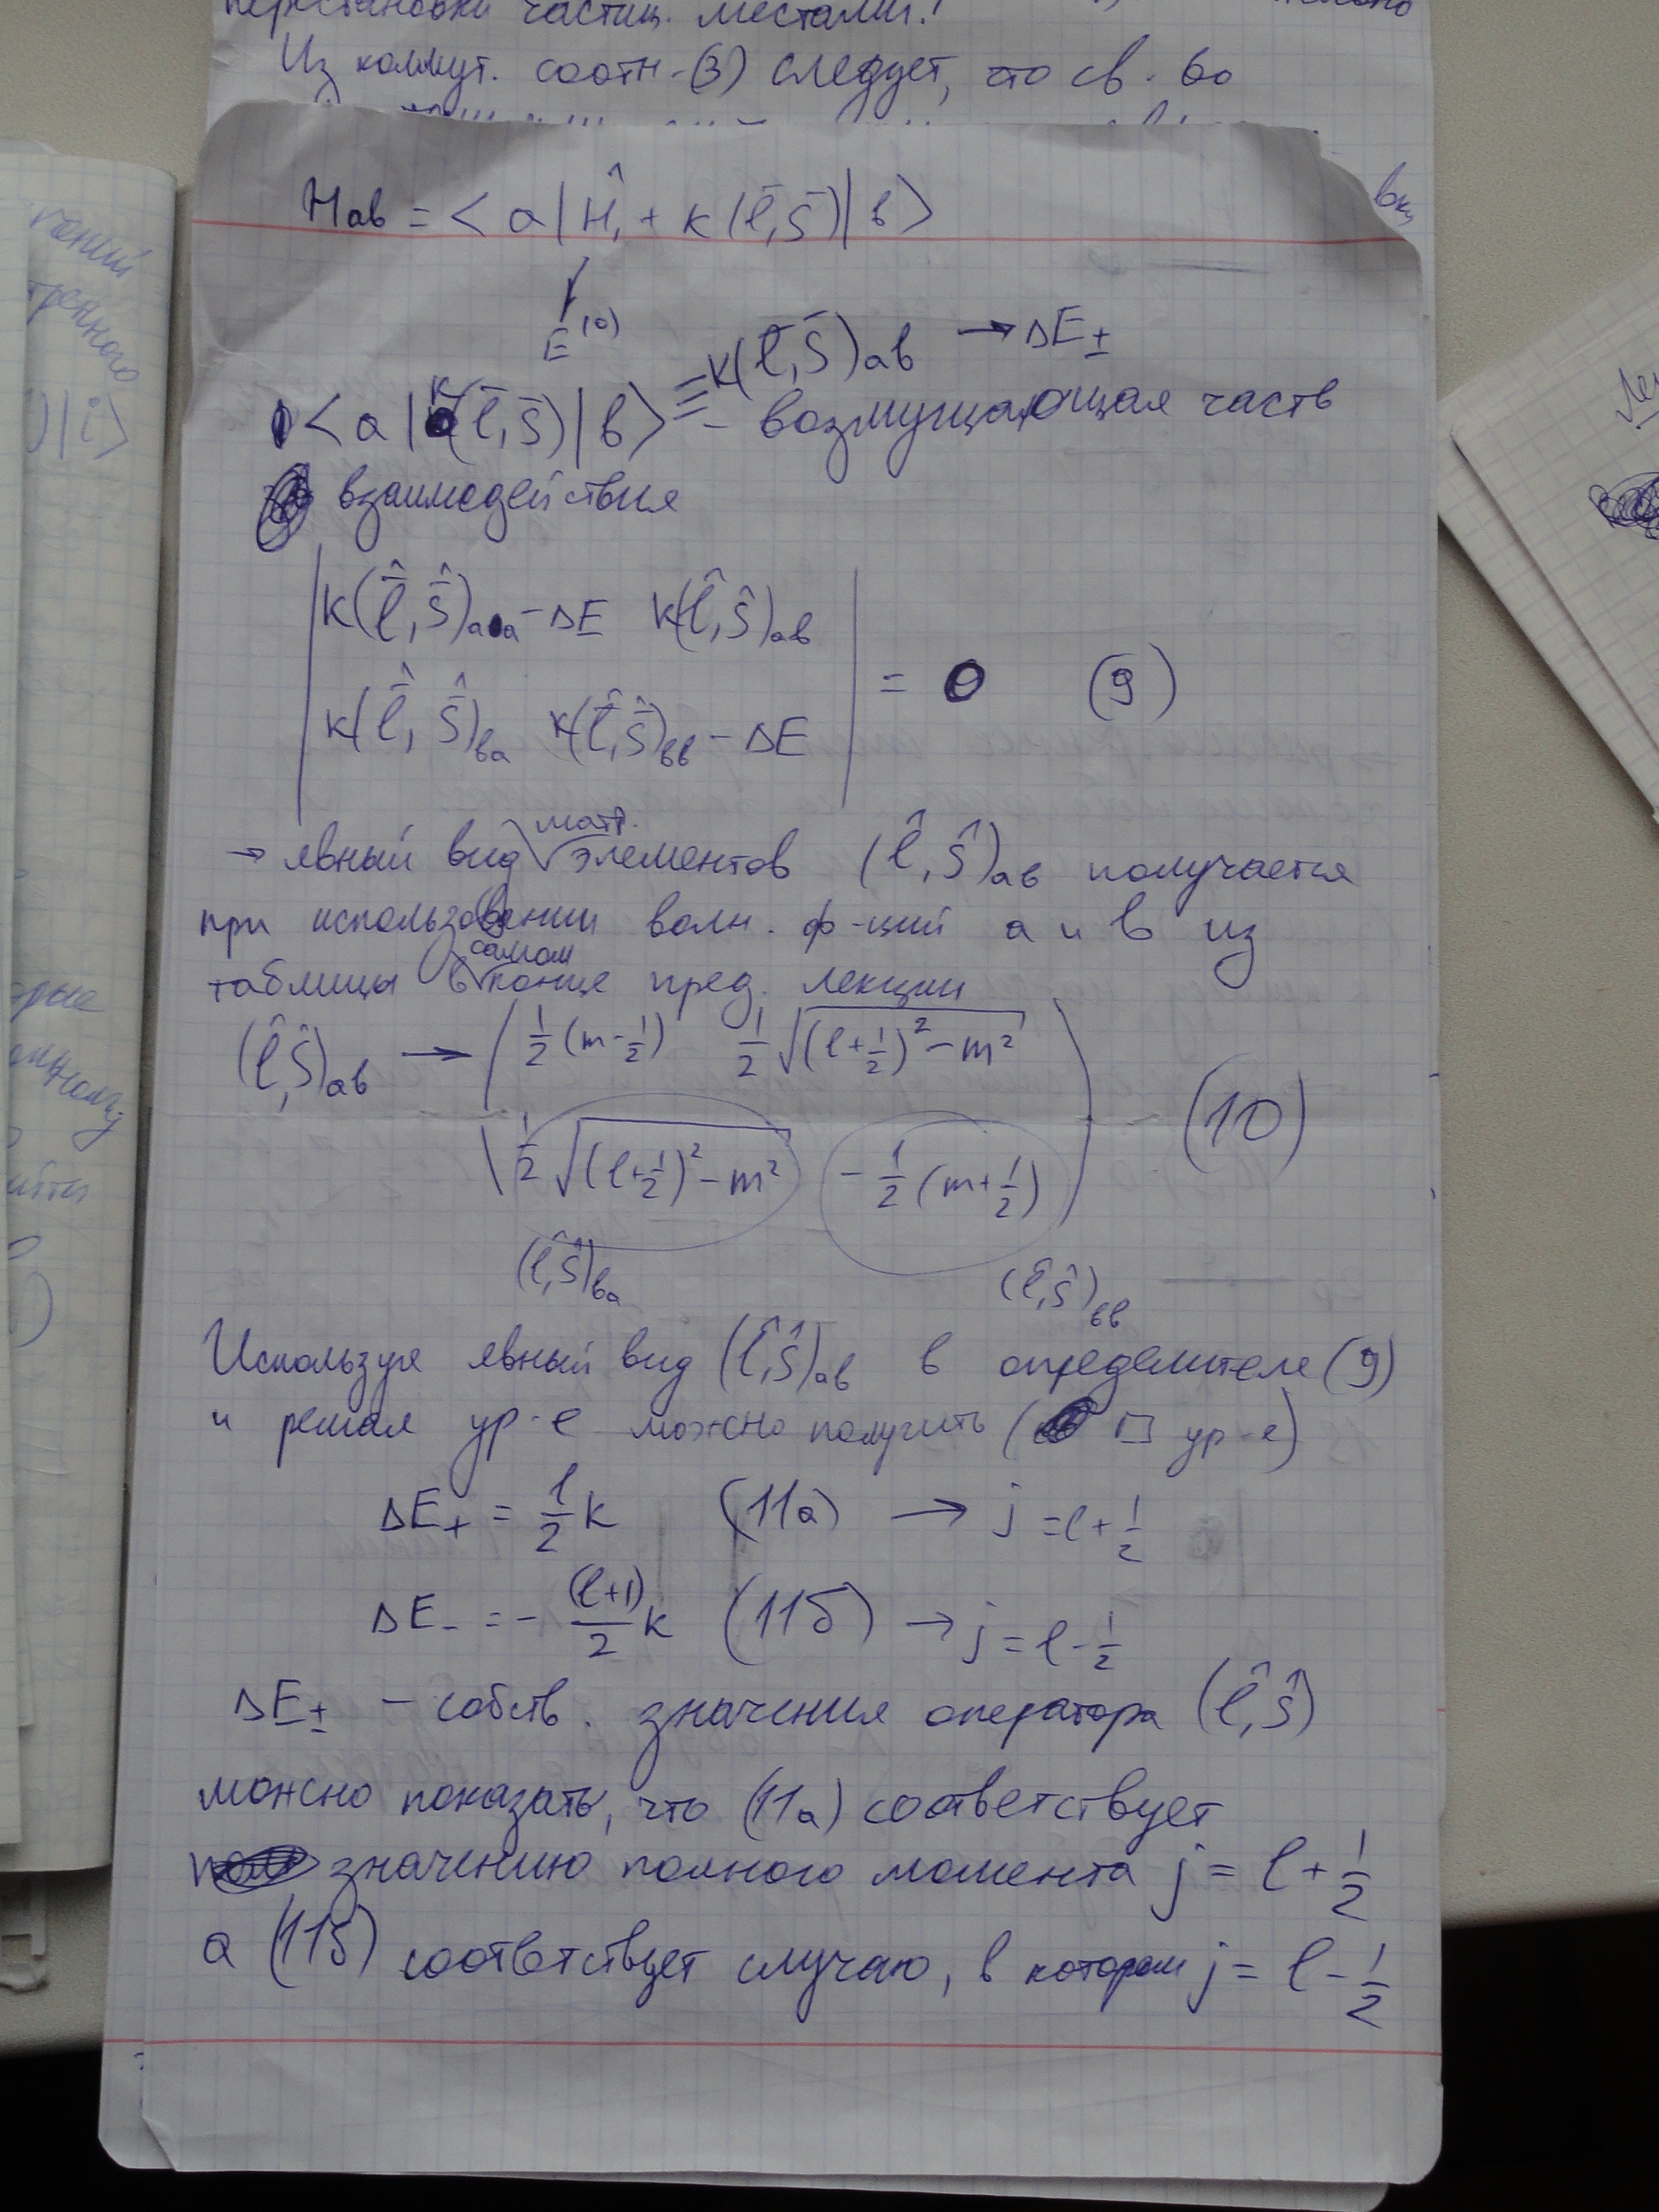 перестановки частиц местами!
Из коммут. соотн-(3) следует, что св-во
Hab = < a | Ĥ₁ + к (l̄, s̄) | b >
E⁽⁰⁾
к(l̄, s̄)ab → ΔE±
< a | к(l̄, s̄) | b > ≡ – возмущающая часть
взаимодействия
| к(l̂, ŝ)aa – ΔE к(l̂, ŝ)ab |
= 0 (9)
| к(l̂, ŝ)ba к(l̂, ŝ)bb – ΔE |
→ явный вид матр. элементов (l̂, ŝ)ab получается
при использовании волн. ф-ций a и b из
таблицы в самом конце пред. лекции
(l̂, ŝ)ab → ( 1/2 (m - 1/2) 1/2 √((l + 1/2)² – m²) )
(10)
( 1/2 √((l + 1/2)² – m²) – 1/2 (m + 1/2) )
(l̂, ŝ)ba (l̂, ŝ)bb
Используя явный вид (l̂, ŝ)ab в определителе (9)
и решая ур-е можно получить ( □ ур-е)
ΔE₊ = l/2 к (11а) → j = l + 1/2
ΔE₋ = – (l+1)/2 к (11б) → j = l - 1/2
ΔE± – собств. значения оператора (l̂, ŝ)
можно показать, что (11а) соответствует
значению полного момента j = l + 1/2
а (11б) соответствует случаю, в котором j = l – 1/2